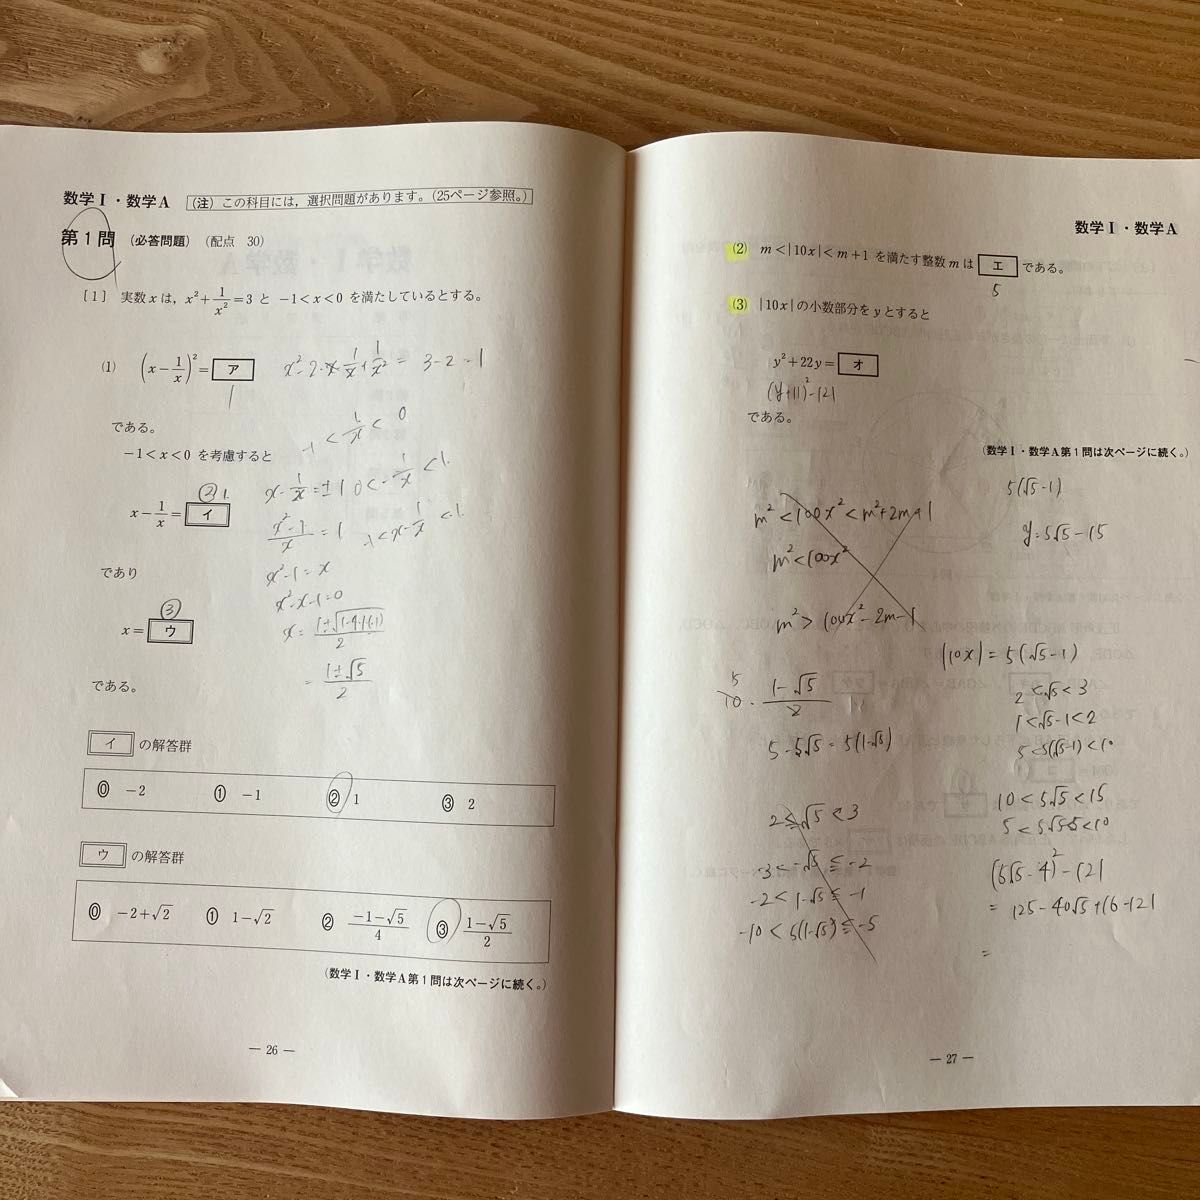 数学Ⅰ・数学A （注）この科目には，選択問題があります。（25ページ参照。）
第1問 （必答問題）（配点 30）
［1］ 実数xは，x²+1/x²=3 と −1<x<0 を満たしているとする。
(1) (x−1/x)²=ア x²-2・x・1/x+1/x² = 3-2=1
1
である。 -1<1/x<0
−1<x<0 を考慮すると
② 1.
x−1/x=イ
x-1/x=±1 0<-1/x<1.
(x²-1)/x=1 -1<x-1/x<1.
であり
x²-1=x
x²-x-1=0
③
x=ウ
x=(1±√(1-4・1・(-1)))/2
=(1±√5)/2
である。
イ の解答群
⓪ −2 ① −1 ② 1 ③ 2
ウ の解答群
⓪ −2+√2 ① 1−√2 ② (−1−√5)/4 ③ (1−√5)/2
（数学Ⅰ・数学A第1問は次ページに続く。）
— 26 —
数学Ⅰ・数学A
(2) m<|10x|<m+1 を満たす整数mは エ である。
5
(3) |10x|の小数部分をyとすると
y²+22y=オ
(y+11)²-121
である。
（数学Ⅰ・数学A第1問は次ページに続く。）
5(√5-1)
y=5√5-15
m²<100x²<m²+2m+1
m²<100x²
m²>100x²-2m-1
5
10・(1-√5)/2
5-5√5=5(1-√5)
2≤√5<3
-3<-√5≤-2
-2<1-√5≤-1
-10<5(1-√5)≤-5
|10x|=5(√5-1)
2<√5<3
1<√5-1<2
5<5(√5-1)<10
10<5√5<15
5<5√5-5<10
(5√5-4)²-121
=125-40√5+16-121
=
— 27 —